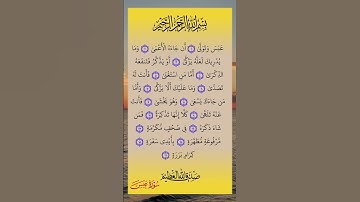 بسم الله الرحمن الرحيم
عَبَسَ وَتَوَلَّىٰ ۝١ أَن جَاءَهُ الْأَعْمَىٰ ۝٢ وَمَا
يُدْرِيكَ لَعَلَّهُ يَزَّكَّىٰ ۝٣ أَوْ يَذَّكَّرُ فَتَنفَعَهُ
الذِّكْرَىٰ ۝٤ أَمَّا مَنِ اسْتَغْنَىٰ ۝٥ فَأَنتَ لَهُ
تَصَدَّىٰ ۝٦ وَمَا عَلَيْكَ أَلَّا يَزَّكَّىٰ ۝٧ وَأَمَّا
مَن جَاءَكَ يَسْعَىٰ ۝٨ وَهُوَ يَخْشَىٰ ۝٩ فَأَنتَ
عَنْهُ تَلَهَّىٰ ۝١٠ كَلَّا إِنَّهَا تَذْكِرَةٌ ۝١١ فَمَن
شَاءَ ذَكَرَهُ ۝١٢ فِي صُحُفٍ مُّكَرَّمَةٍ ۝١٣
مَّرْفُوعَةٍ مُّطَهَّرَةٍ ۝١٤ بِأَيْدِي سَفَرَةٍ ۝١٥
كِرَامٍ بَرَرَةٍ ۝١٦
صدق الله العظيم
سورة عبس